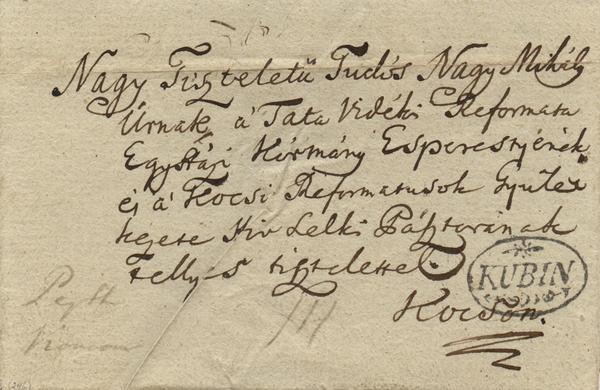 Nagy Tiszteletű Tudós Nagy Mihály
Úrnak, á Tata Vidéki Reformata
Egyházi Kórmány Esperestjének
és á Kocsi Reformatusok Gyüle=
kezete Hív Lelki Pásztorának
tellyes tisztelettel.
KUBIN
Kocson.